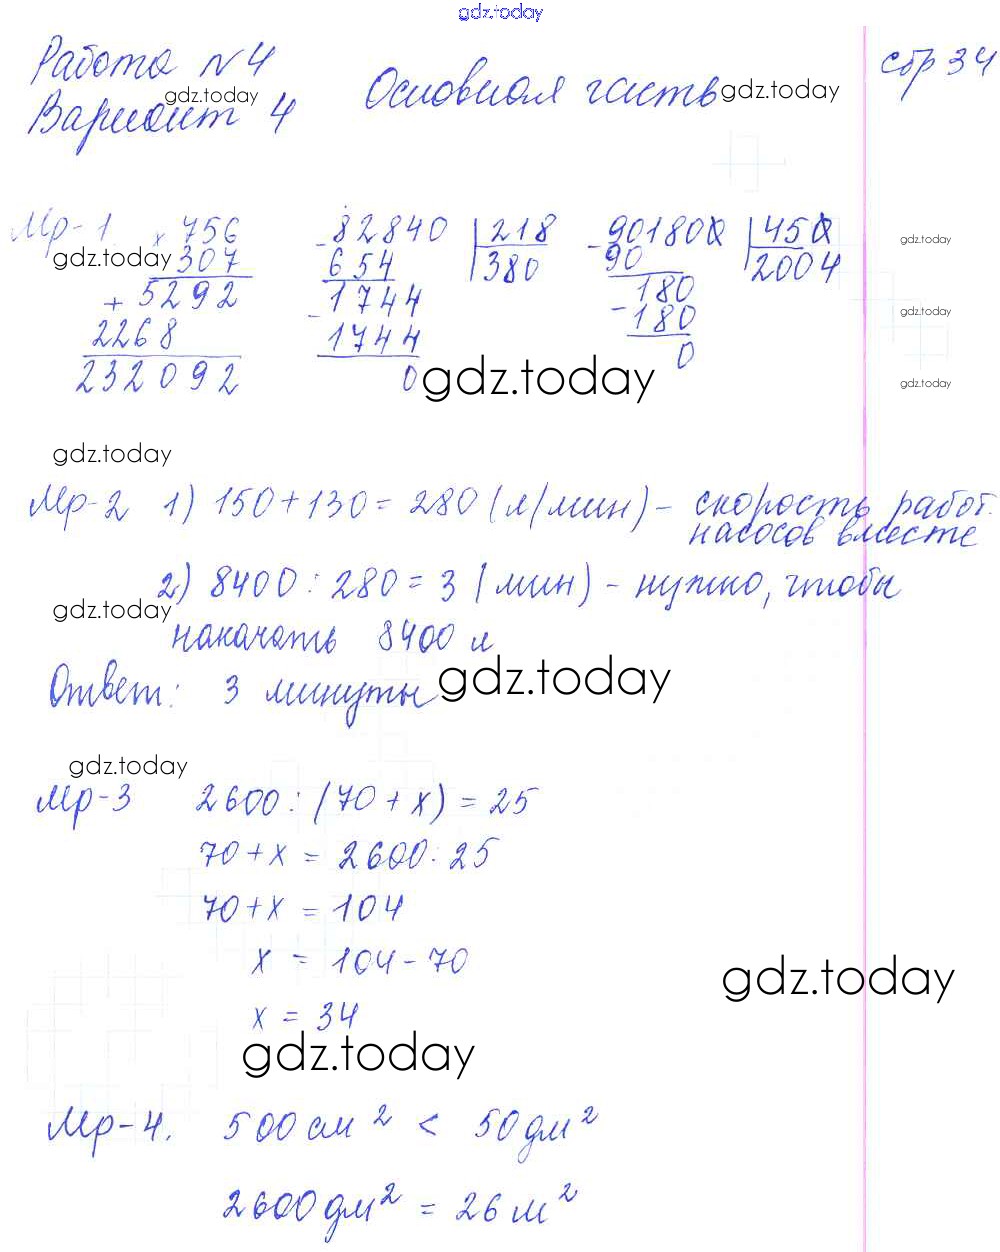 gdz.today
Работа №4
стр 34
gdz.today
Вариант 4
Основная часть
gdz.today
Мр-1.
× 756
307
+ 5292
2268
232092
- 82840 | 218
654 | 380
- 1744
1744
0
- 901800 | 450
90 | 2004
- 180
180
0
gdz.today
gdz.today
gdz.today
gdz.today
gdz.today
gdz.today
Мр-2 1) 150+130=280 (л/мин) – скорость работ.
насосов вместе
2) 8400:280=3 (мин) – нужно, чтобы
gdz.today
накачать 8400 л
Ответ: 3 минуты
gdz.today
gdz.today
Мр-3 2600:(70+х)=25
70+х=2600:25
70+х=104
х=104-70
gdz.today
х=34
gdz.today
Мр-4. 500 см² < 50 дм²
2600 дм² = 26 м²